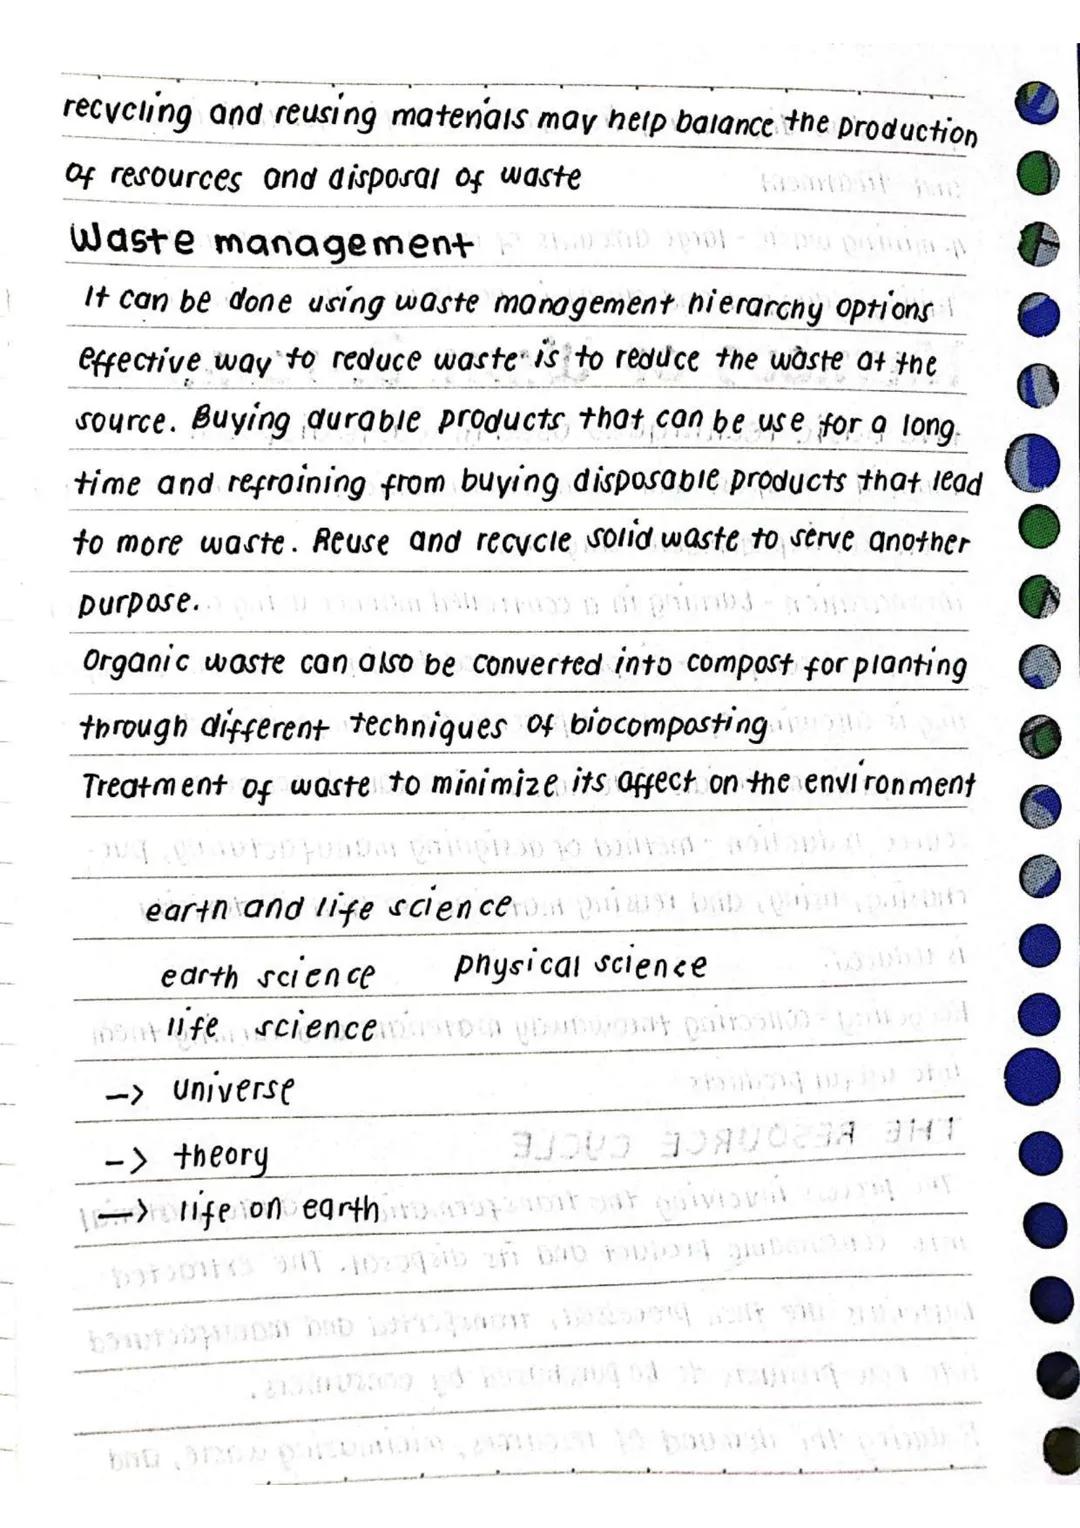 recycling and reusing materials may help balance the production
of resources and disposal of waste
Waste management
It can be done using waste management hierarchy options
effective way to reduce waste is to reduce the waste at the
source. Buying durable products that can be use for a long
time and refraining from buying disposable products that lead
to more waste. Reuse and recycle solid waste to serve another
purpose.
Organic waste can also be converted into compost for planting
through different techniques of biocomposting
Treatment of waste to minimize its affect on the environment
earth and life science
earth science physical science
life science
-> universe
-> theory
-> life on earth